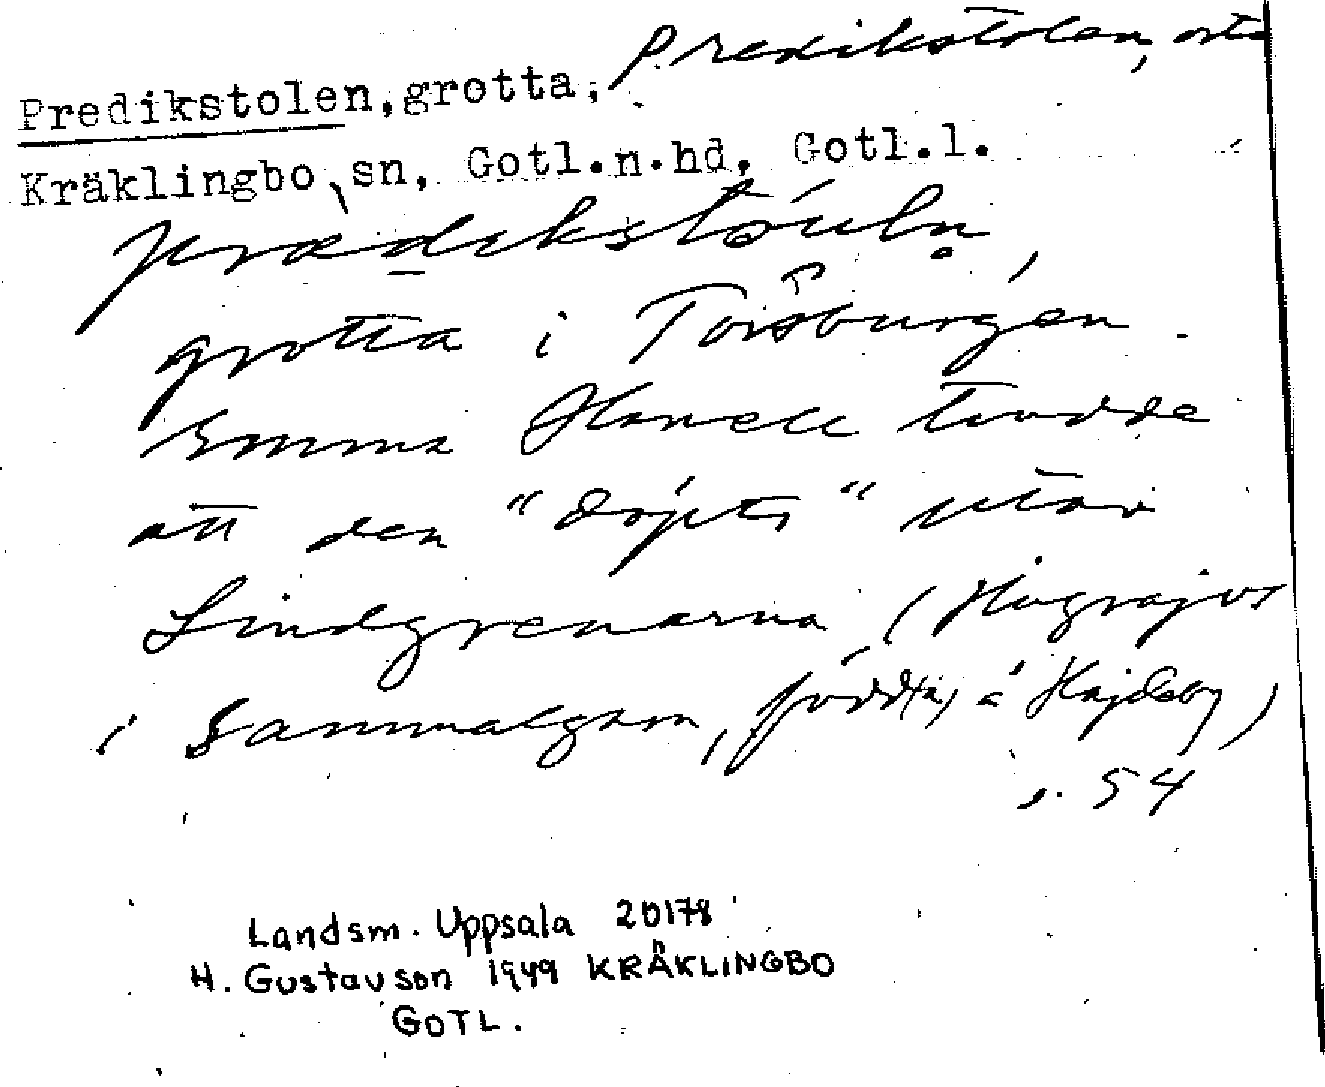 Predikstolen, orts
Predikstolen, grotta,
Kräklingbo sn, Gotl.n.hd, Gotl.l.
prædikstóuln,
grotta i Torsburgen.
Emma Hanell trodde
att den "döpts" utav
Lindgrenarna (Hugrajvs
i Sammalgarn, född(a) å Hajdeby)
s. 54
Landsm. Uppsala 20178
H. Gustavson 1949 KRÄKLINGBO
GOTL.